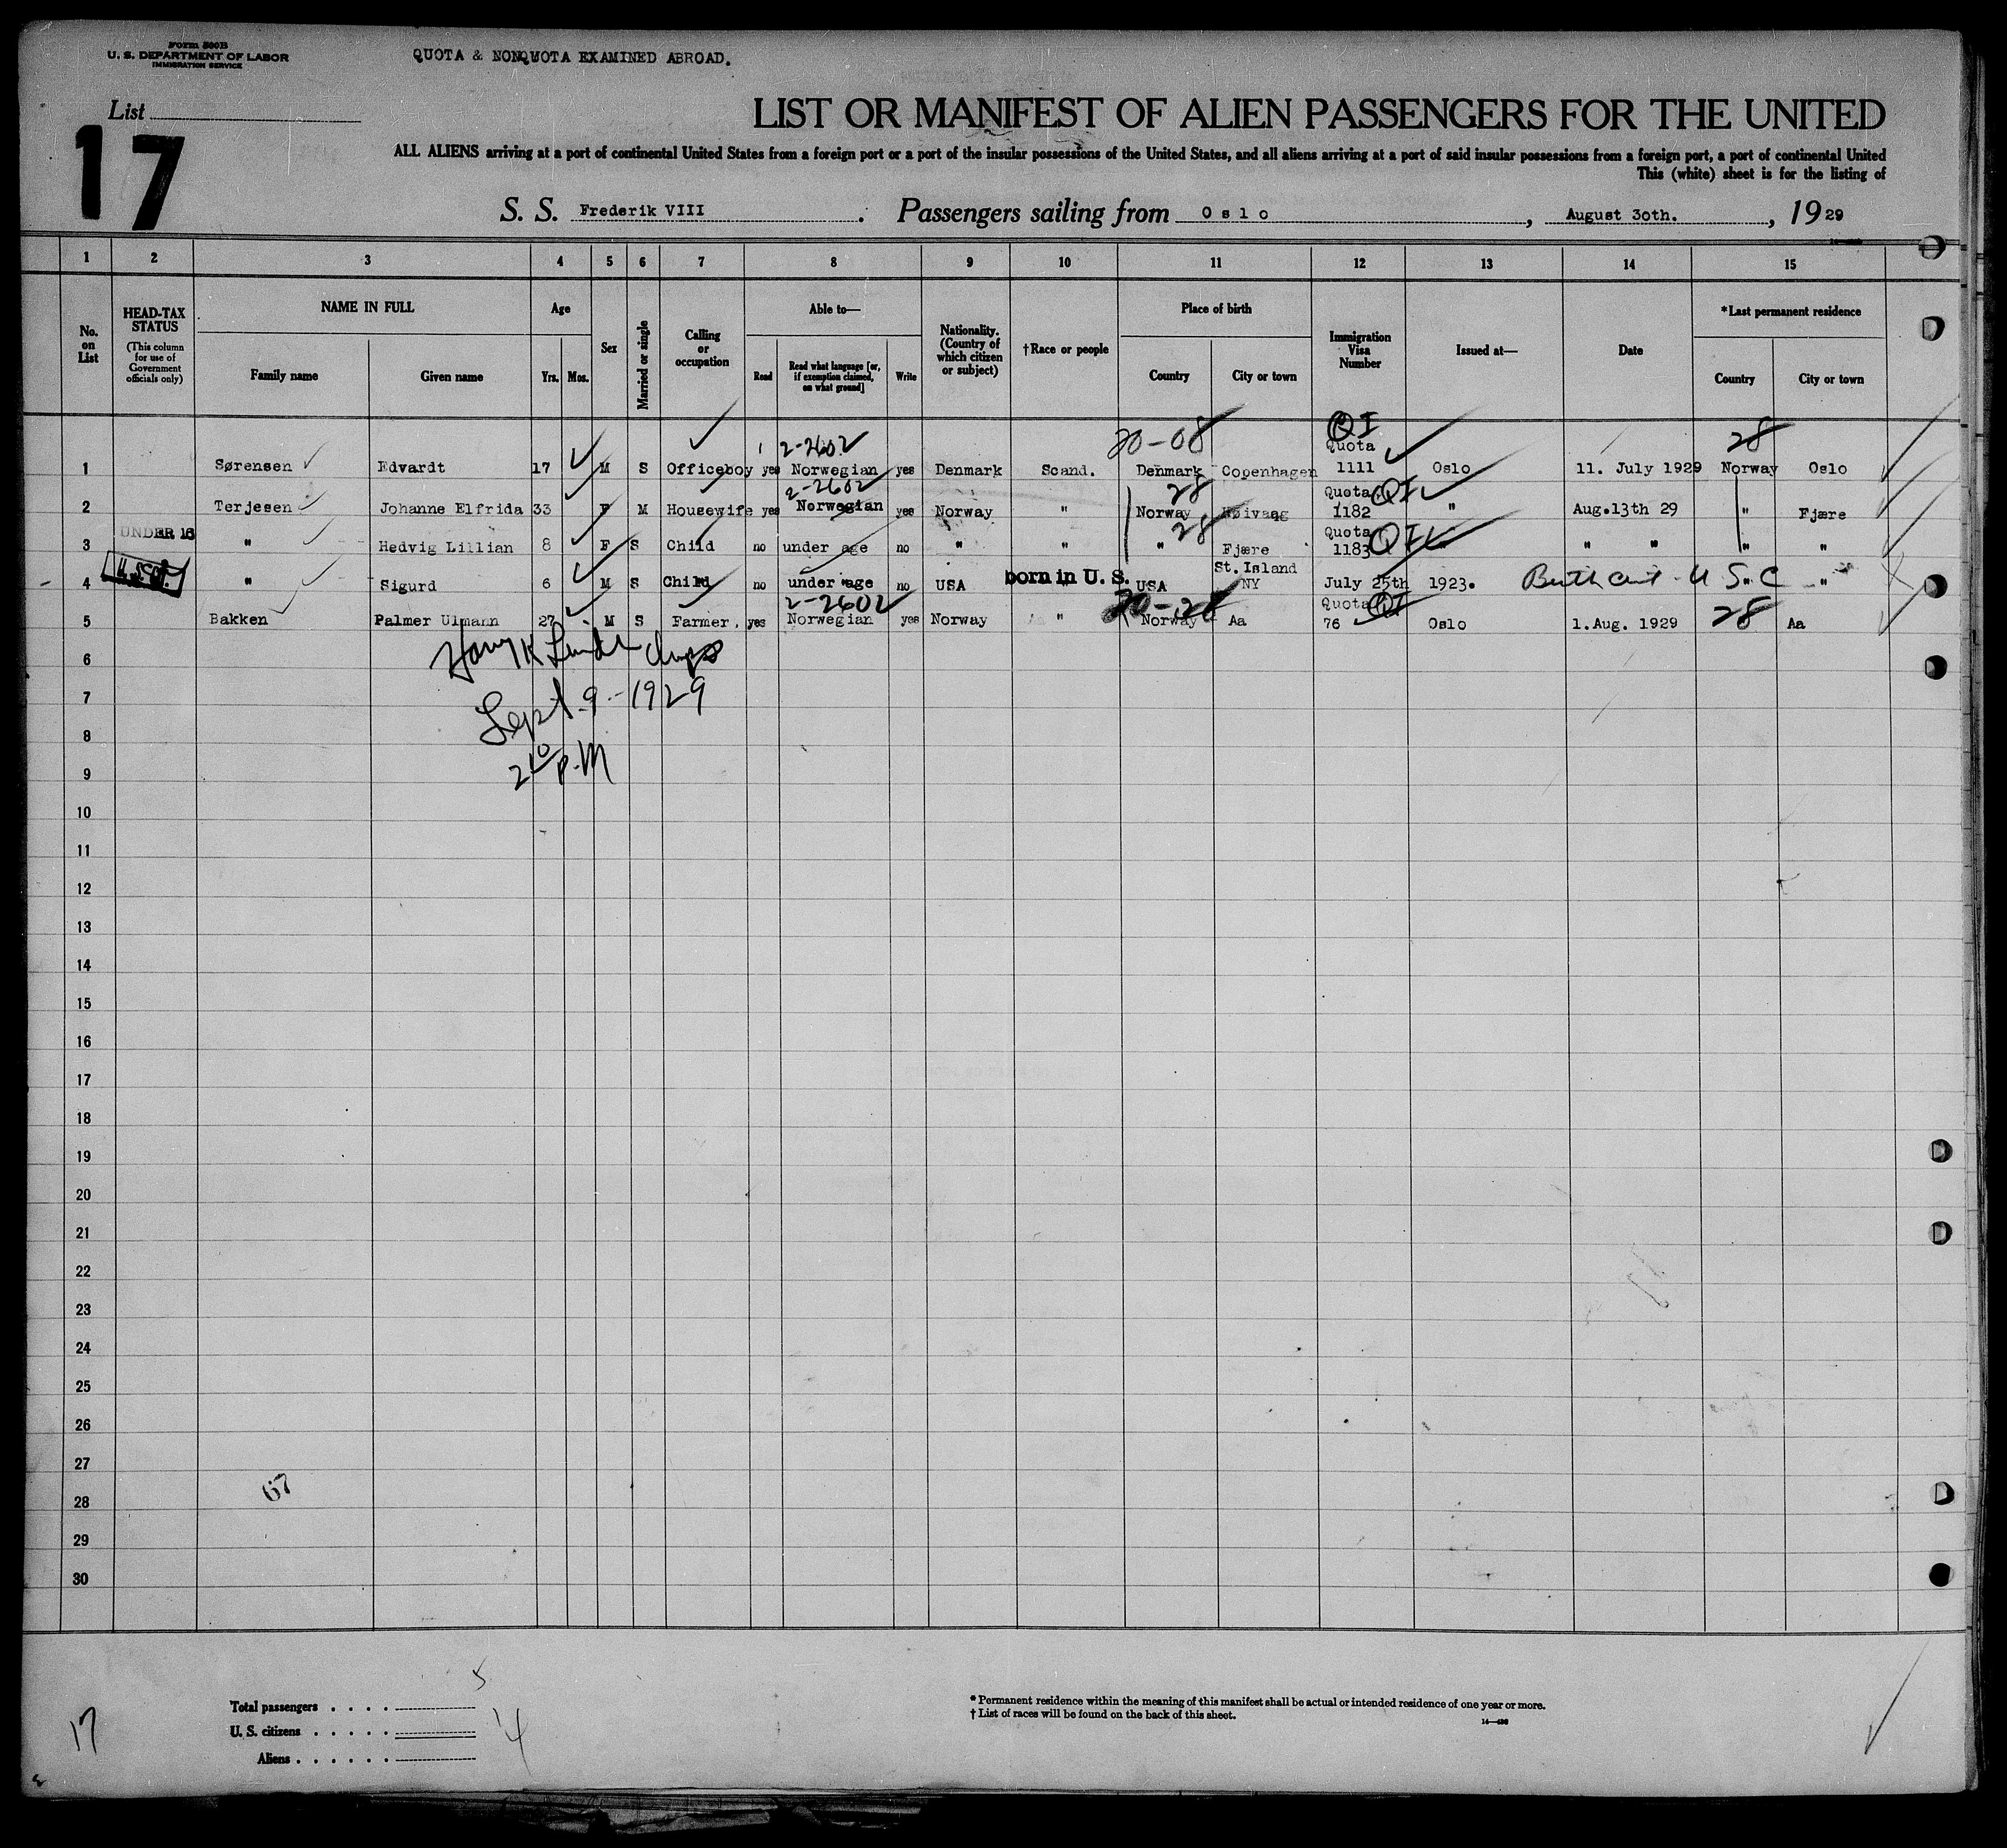 Form 500B
U. S. DEPARTMENT OF LABOR
IMMIGRATION SERVICE
QUOTA & NONQUOTA EXAMINED ABROAD.
List
17
LIST OR MANIFEST OF ALIEN PASSENGERS FOR THE UNITED
ALL ALIENS arriving at a port of continental United States from a foreign port or a port of the insular possessions of the United States, and all aliens arriving at a port of said insular possessions from a foreign port, a port of continental United
This (white) sheet is for the listing of
S. S. Frederik VIII. Passengers sailing from Oslo, August 30th., 1929
1 2 3 4 5 6 7 8 9 10 11 12 13 14 15
No. on List
HEAD-TAX STATUS
(This column for use of Government officials only)
NAME IN FULL
Family name Given name
Age
Yrs. Mos.
Sex
Married or single
Calling or occupation
Able to—
Read
Read what language [or, if exemption claimed, on what ground]
Write
Nationality. (Country of which citizen or subject)
†Race or people
Place of birth
Country City or town
Immigration Visa Number
Issued at—
Date
*Last permanent residence
Country City or town
2-2602 20-08 QI 28
Quota
1 Sørensen Edvardt 17 M S Officeboy yes Norwegian yes Denmark Scand. Denmark Copenhagen 1111 Oslo 11. July 1929 Norway Oslo
2-2602 28 Quota QI
2 Terjesen Johanne Elfrida 33 F M Housewife yes Norwegian yes Norway " Norway Høivaag 1182 " Aug.13th 29 " Fjære
UNDER 16 28 Quota QI
3 " Hedvig Lillian 8 F S Child no under age no " " " Fjære 1183 " " " " "
U.S.Cit. born in U. S. St. Island
4 " Sigurd 6 M S Child no under age no USA " USA NY July 25th 1923. Birth Cert - U S C " "
2-2602 20-28 Quota QI
5 Bakken Palmer Ulmann 27 M S Farmer. yes Norwegian yes Norway " Norway Aa 76 Oslo 1.Aug. 1929 28 Aa
Sept-9-1929
2 10 P.M
6
7
8
9
10
11
12
13
14
15
16
17
18
19
20
21
22
23
24
25
26
27
28
67
29
30
17
Total passengers . . . . 5
U. S. citizens . . . . .
Aliens . . . . . . 4
* Permanent residence within the meaning of this manifest shall be actual or intended residence of one year or more.
† List of races will be found on the back of this sheet.